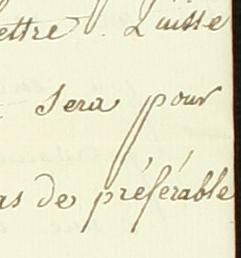 ettre. Puisse
sera pour
as de préférable